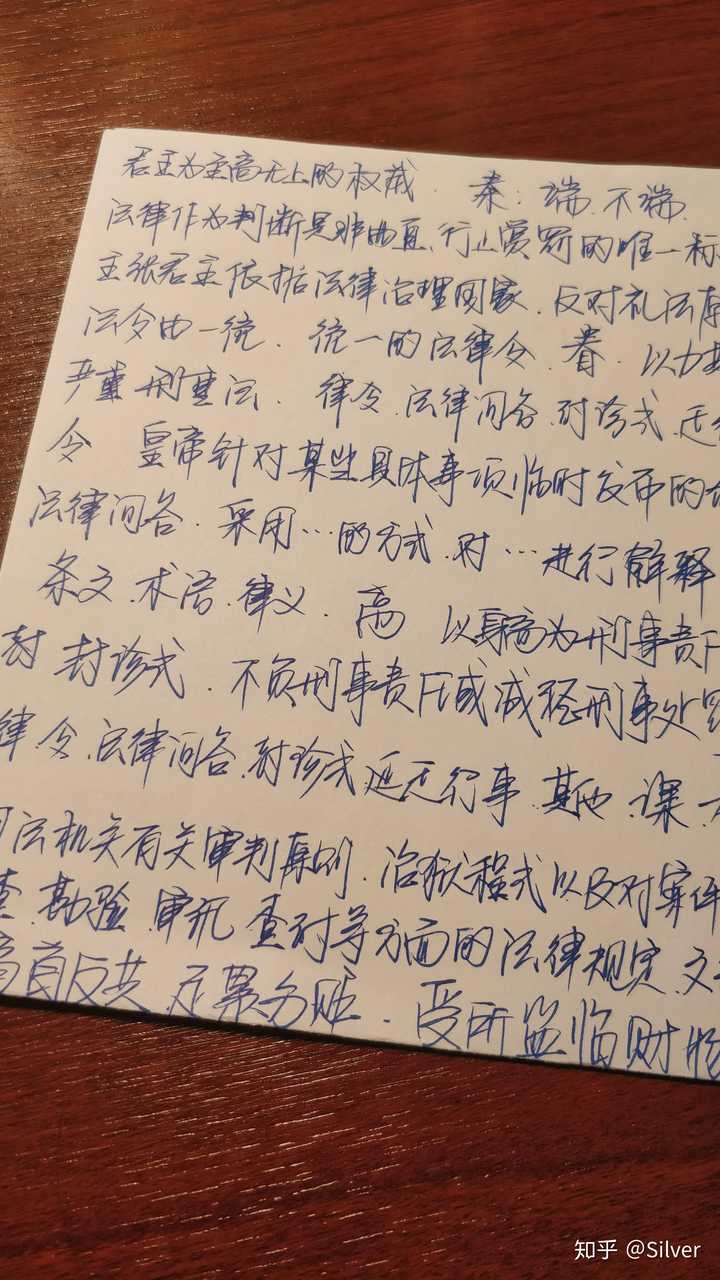 君主为至高无上的权威. 秦:端.不端
法律作为判断是非曲直、行止赏罚的唯一标
主张君主依据法律治理国家.反对礼法
法令由一统. 统一的法律令. 以力
严重刑重法. 律令.法律问答.封诊式.廷
令 皇帝针对某些具体事项临时发布的
法律问答.采用…的方式.对…进行解释
条文.术语.律义. 高 以身高为刑事责
封 封诊式. 不负刑事责任或减轻刑事处罚
律令.法律问答.封诊式.廷尉行事.其他.课.
司法机关有关审判原则.治狱程式以及对案件
查.勘验.审讯.查封等方面的法律规定.文
反其. 受所监临财物
知乎 @Silver